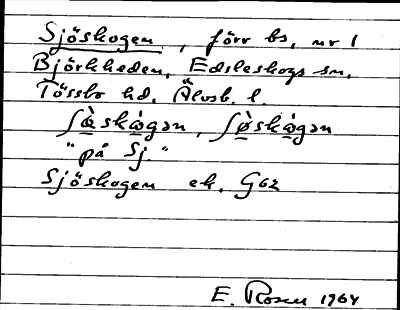 Sjöskogen, förr bs, nr 1
Björkheden, Edsleskogs sn,
Tössbo hd. Älvsb. l.
ʃœ̀skògən, ʃø̀skògən
"på Sj."
Sjöskogen ek. G62
E. Rosen 1964